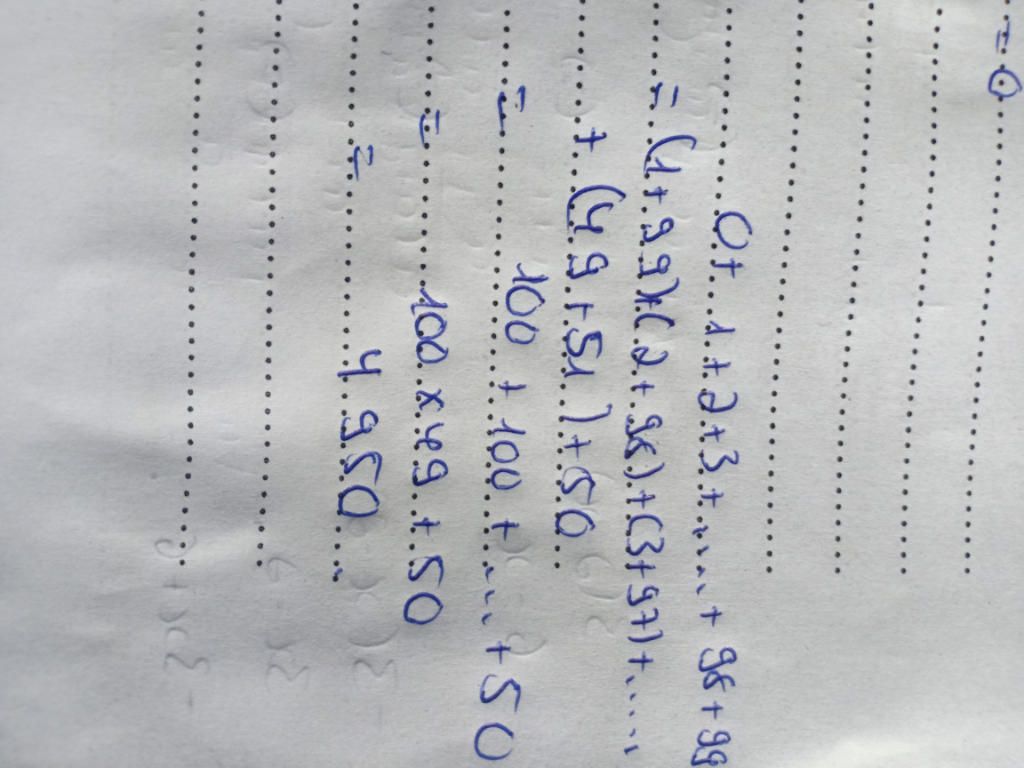 = 0
0+ 1+2+3+.....+ 98+99
= (1+99)+(2+98)+(3+97)+.....
+ (49+51)+50
= 100 + 100 + ... +50
= 100 x 49 + 50
= 4 950